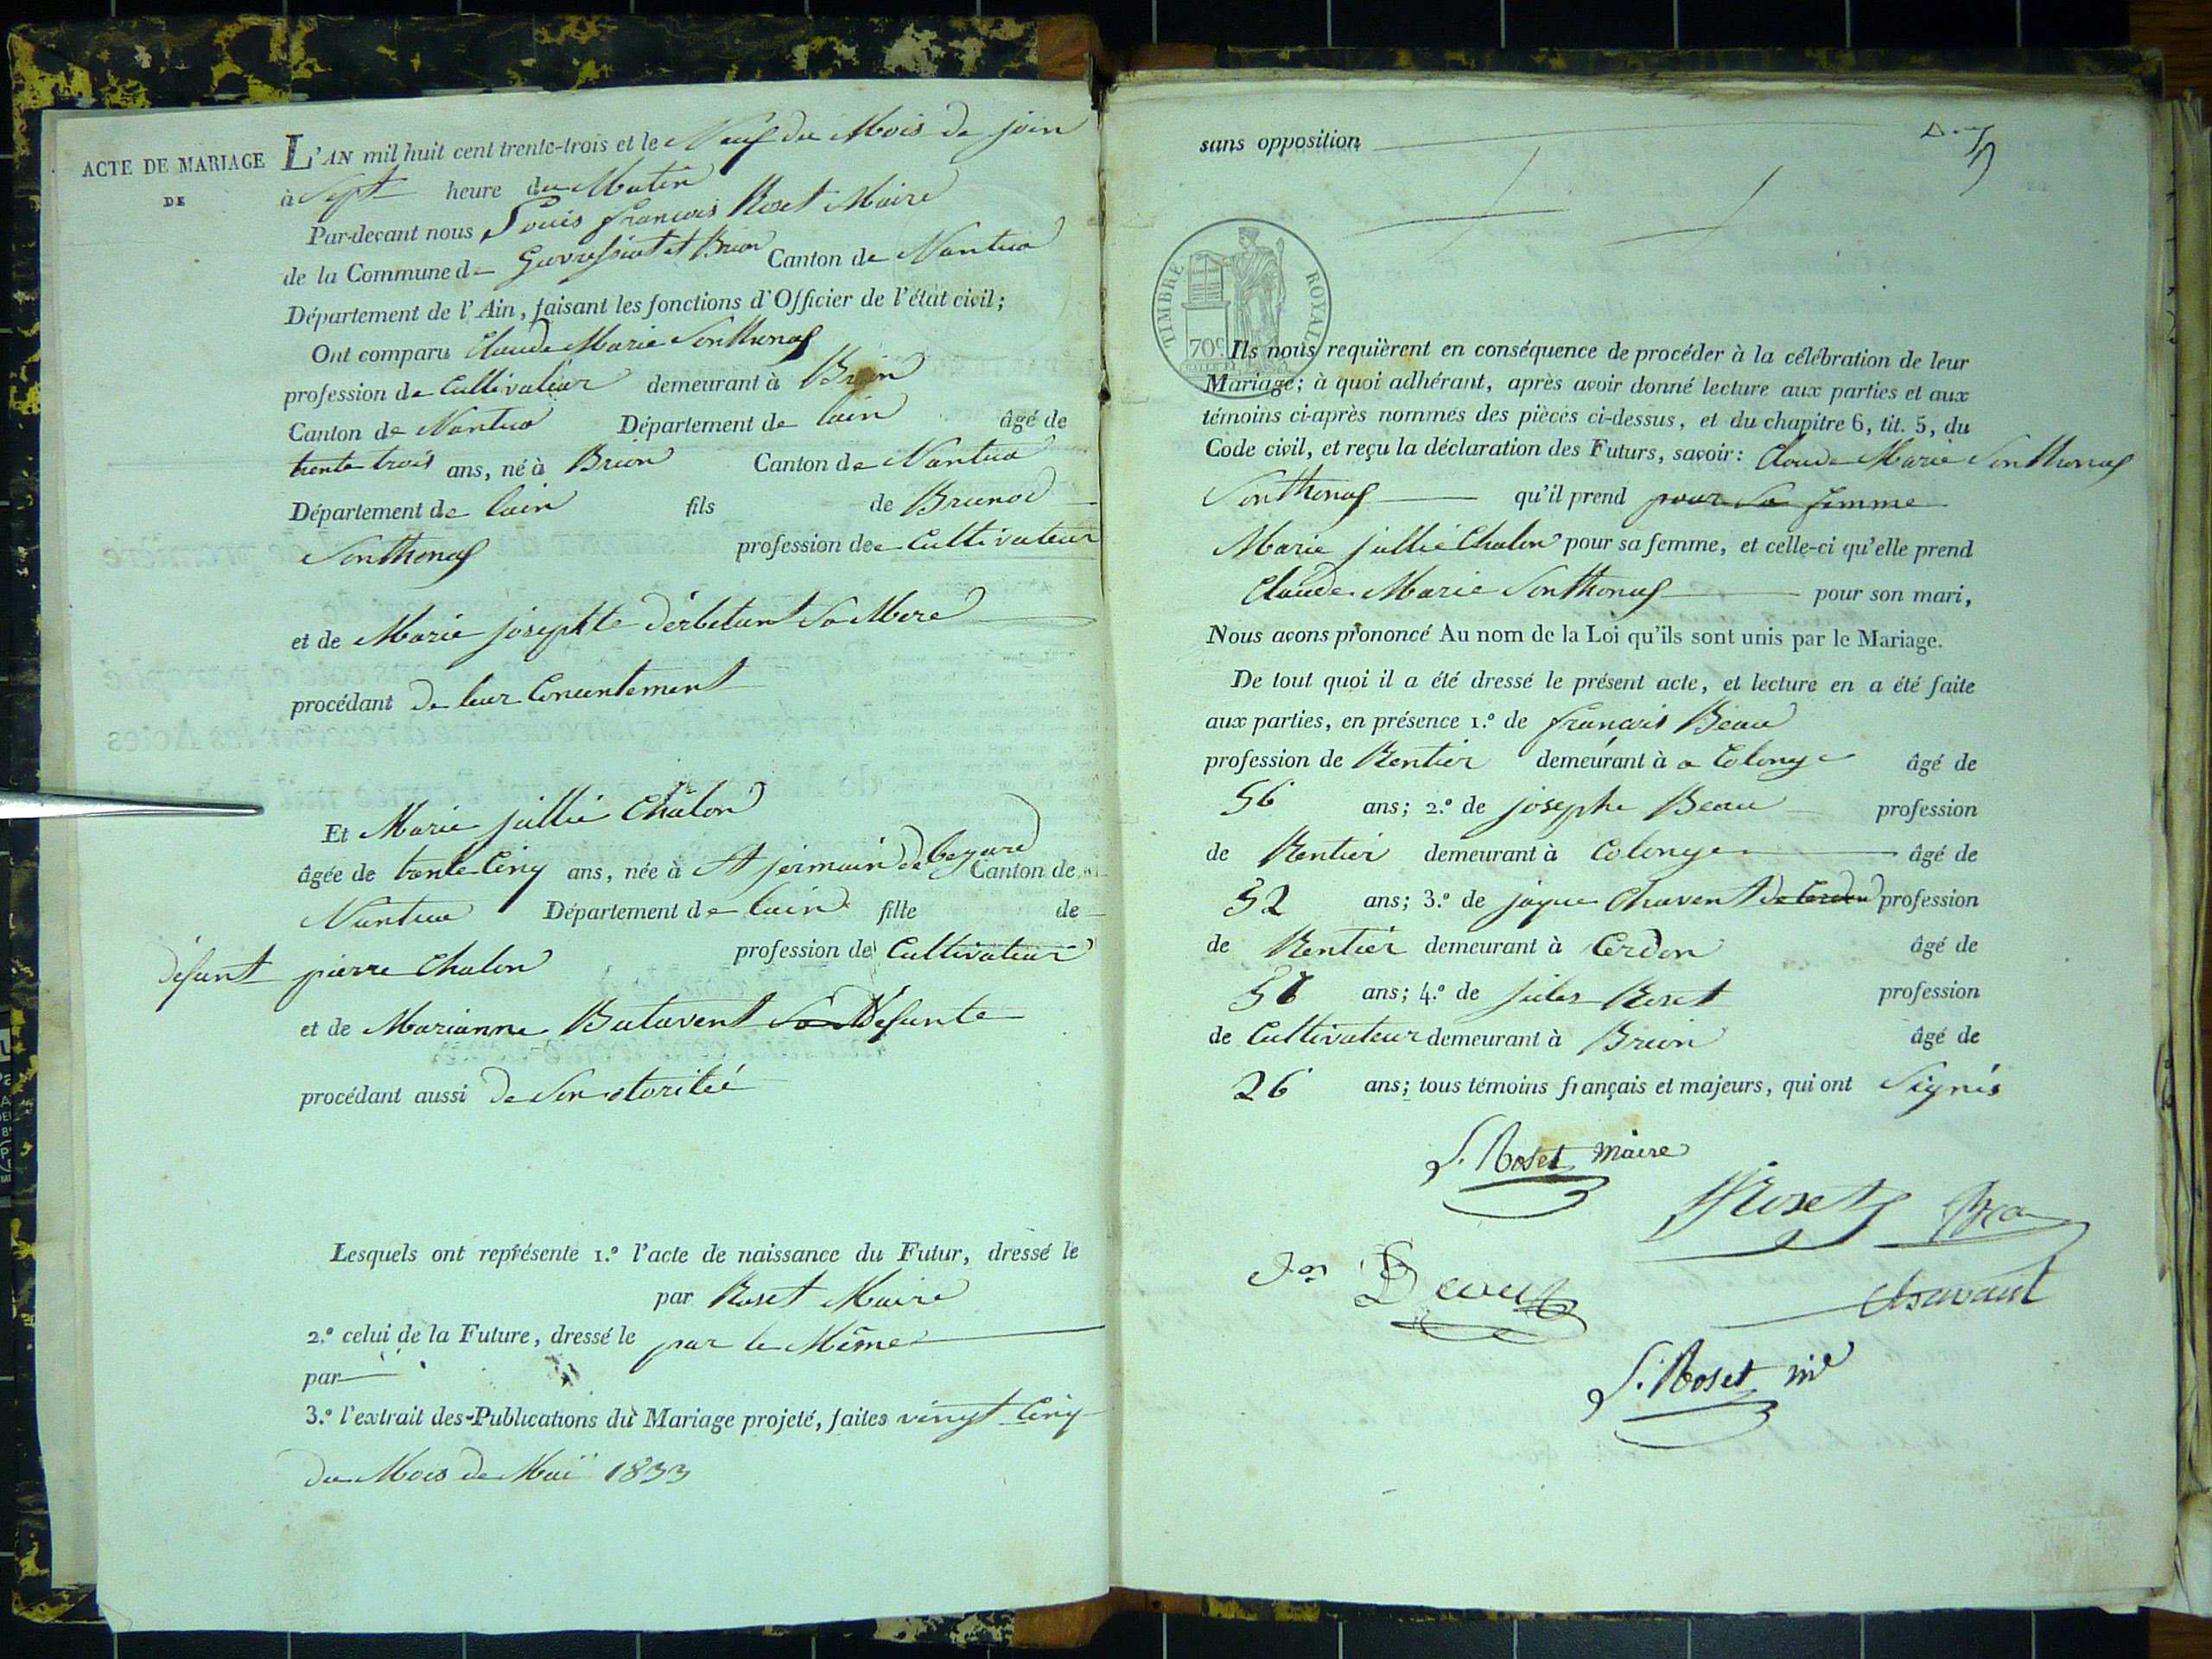 ACTE DE MARIAGE
DE
L'AN mil huit cent trente-trois et le Neuf du Mois de join
à Sept heure du Matin
Par-devant nous Louis francois Roset Maire
de la Commune de Geovressiat et Brion Canton de Nantua
Département de l'Ain, faisant les fonctions d'Officier de l'état civil;
Ont comparu Claude Marie Sonthonas
profession de Cultivateur demeurant à Brion
Canton de Nantua Département de lain âgé de
trente trois ans, né à Brion Canton de Nantua
Département de lain fils de Brunod
Sonthonas profession de Cultivateur
et de Marie josephte derbetant Sa Mere
procédant de leur Concentement
Et Marie jullie Chalon
âgée de trente Cinq ans, née à St jermain de Beyard Canton de
Nantua Département de lain fille de
défunt pierre Chalon profession de Cultivateur
et de Marianne Batavent Défunte
procédant aussi de Son otorité
Lesquels ont représente 1.º l'acte de naissance du Futur, dressé le
par Roset Maire
2.º celui de la Future, dressé le par le Même
par
3.º l'extrait des Publications du Mariage projeté, faites vingt Cinq
du Mois de Mai 1833
sans opposition
TIMBRE ROYAL
70c
Ils nous requièrent en conséquence de procéder à la célébration de leur
Mariage; à quoi adhérant, après avoir donné lecture aux parties et aux
témoins ci-après nommés des pièces ci-dessus, et du chapitre 6, tit. 5, du
Code civil, et reçu la déclaration des Futurs, savoir: Claude Marie Sonthonas
Sonthonas qu'il prend pour Sa femme
Marie jullie Chalon pour sa femme, et celle-ci qu'elle prend
Claude Marie Sonthonas pour son mari,
Nous avons prononcé Au nom de la Loi qu'ils sont unis par le Mariage.
De tout quoi il a été dressé le présent acte, et lecture en a été faite
aux parties, en présence 1.º de francois Beau
profession de Rentier demeurant à a Colonge âgé de
56 ans; 2.º de josephe Beau profession
de Rentier demeurant à Colonge âgé de
52 ans; 3.º de jaque Chavent de Cerdon profession
de Rentier demeurant à Cerdon âgé de
ans; 4.º de jules Roset profession
de Cultivateur demeurant à Brion âgé de
26 ans; tous témoins français et majeurs, qui ont Signés
L. Roset maire
Roset
Chavant
L. Roset me